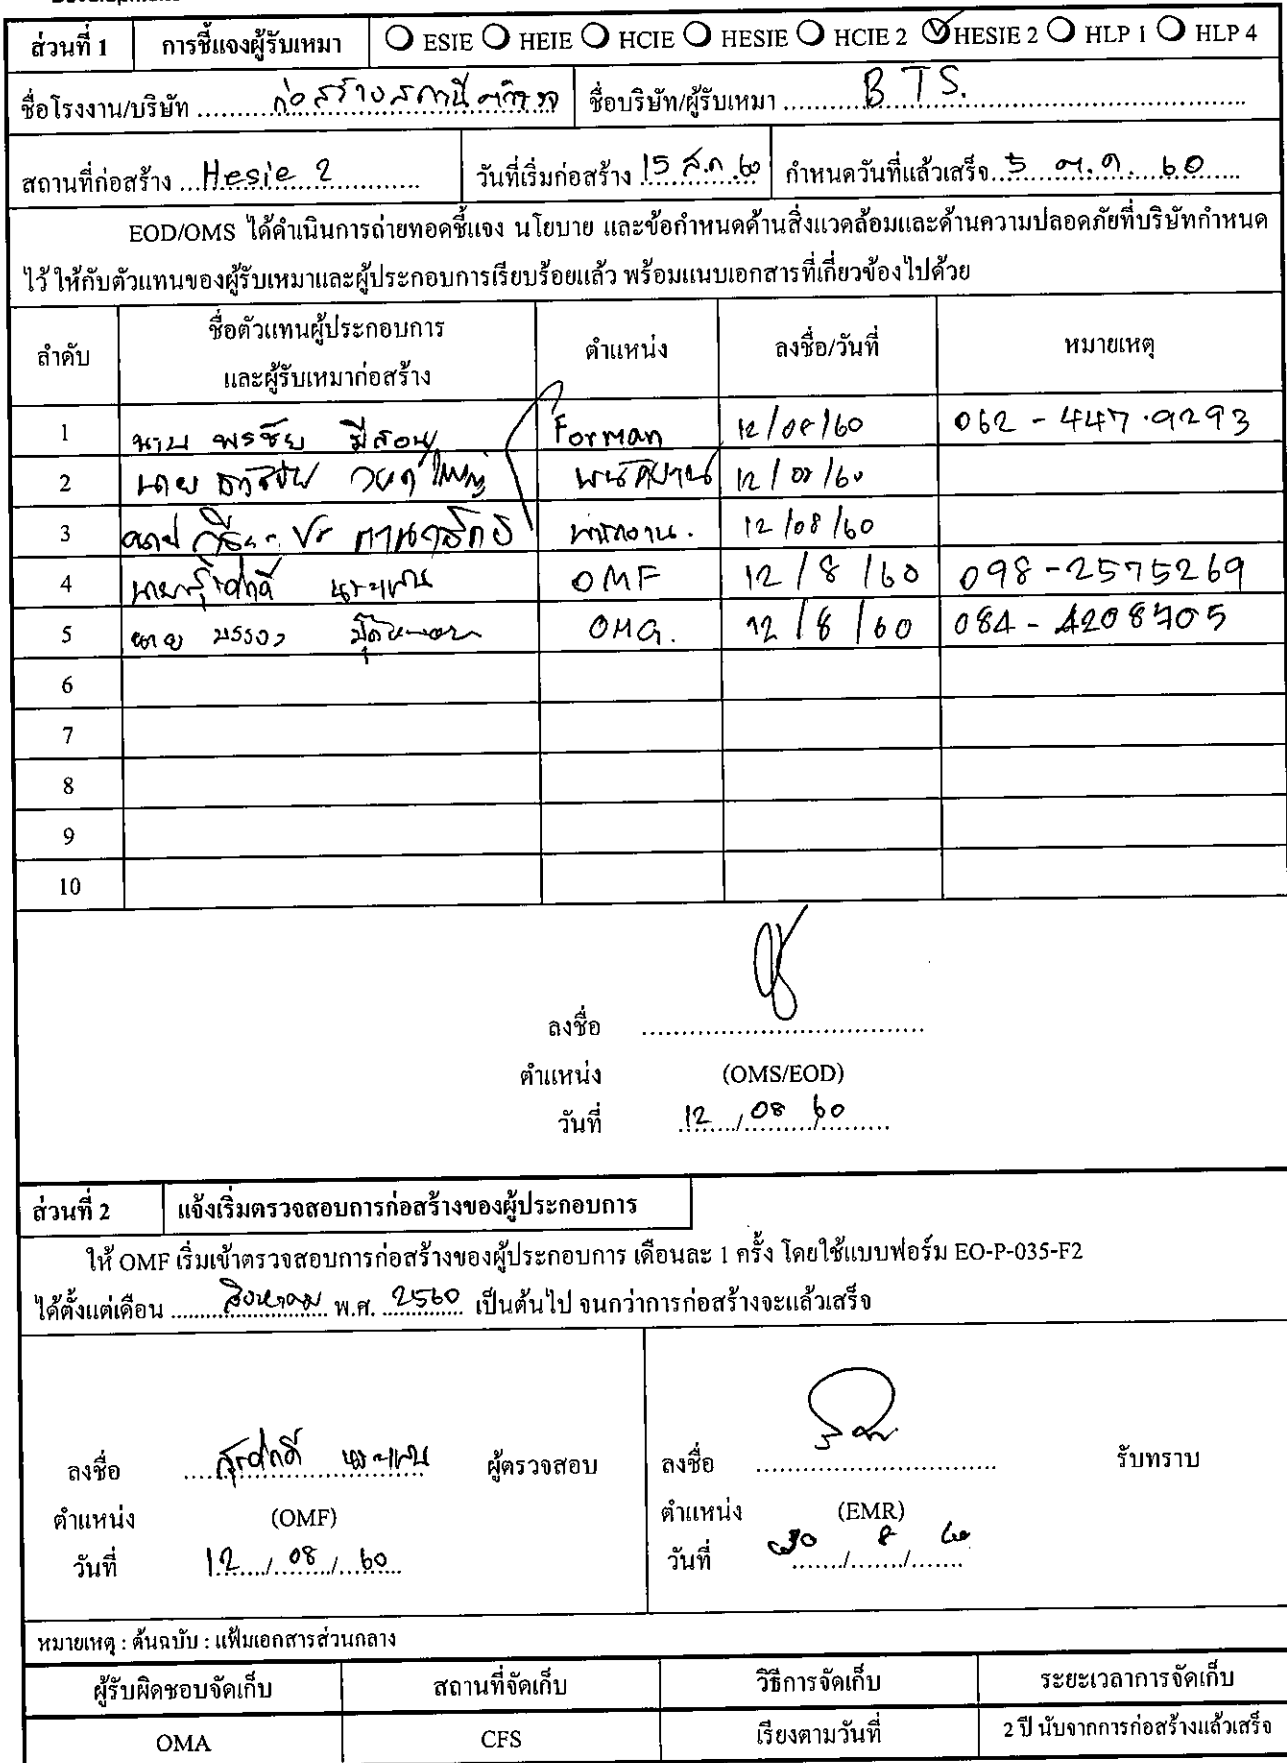 ส่วนที่ 1 การชี้แจงผู้รับเหมา ESIE HEIE HCIE HESIE HCIE 2 HESIE 2 HLP 1 HLP 4
ชื่อโรงงาน/บริษัท ก่อสร้างสถานีตำรวจ ชื่อบริษัท/ผู้รับเหมา B T S.
สถานที่ก่อสร้าง Hesie 2 วันที่เริ่มก่อสร้าง 15 ส.ค 60 กำหนดวันที่แล้วเสร็จ 5 ต.ค. 60
EOD/OMS ได้ดำเนินการถ่ายทอดชี้แจง นโยบาย และข้อกำหนดด้านสิ่งแวดล้อมและด้านความปลอดภัยที่บริษัทกำหนด
ไว้ ให้กับตัวแทนของผู้รับเหมาและผู้ประกอบการเรียบร้อยแล้ว พร้อมแนบเอกสารที่เกี่ยวข้องไปด้วย
ลำดับ ชื่อตัวแทนผู้ประกอบการ ตำแหน่ง ลงชื่อ/วันที่ หมายเหตุ
และผู้รับเหมาก่อสร้าง
1 นาย พรชัย มีสอน Forman 12/08/60 062 - 447.9293
2 นาย พนักงาน 12/08/60
3 พนักงาน. 12/08/60
4 นายสุรศักดิ์ OMF 12/8/60 098-2575269
5 นาย OMG. 12/8/60 084-4208705
6
7
8
9
10
ลงชื่อ
ตำแหน่ง (OMS/EOD)
วันที่ 12/08/60
ส่วนที่ 2 แจ้งเริ่มตรวจสอบการก่อสร้างของผู้ประกอบการ
ให้ OMF เริ่มเข้าตรวจสอบการก่อสร้างของผู้ประกอบการ เดือนละ 1 ครั้ง โดยใช้แบบฟอร์ม EO-P-035-F2
ได้ตั้งแต่เดือน สิงหาคม พ.ศ. 2560 เป็นต้นไป จนกว่าการก่อสร้างจะแล้วเสร็จ
ลงชื่อ สุรศักดิ์ ผู้ตรวจสอบ ลงชื่อ รับทราบ
ตำแหน่ง (OMF) ตำแหน่ง (EMR)
วันที่ 12/08/60 วันที่ 30/8/60
หมายเหตุ : ต้นฉบับ : แฟ้มเอกสารส่วนกลาง
ผู้รับผิดชอบจัดเก็บ สถานที่จัดเก็บ วิธีการจัดเก็บ ระยะเวลาการจัดเก็บ
OMA CFS เรียงตามวันที่ 2 ปี นับจากการก่อสร้างแล้วเสร็จ